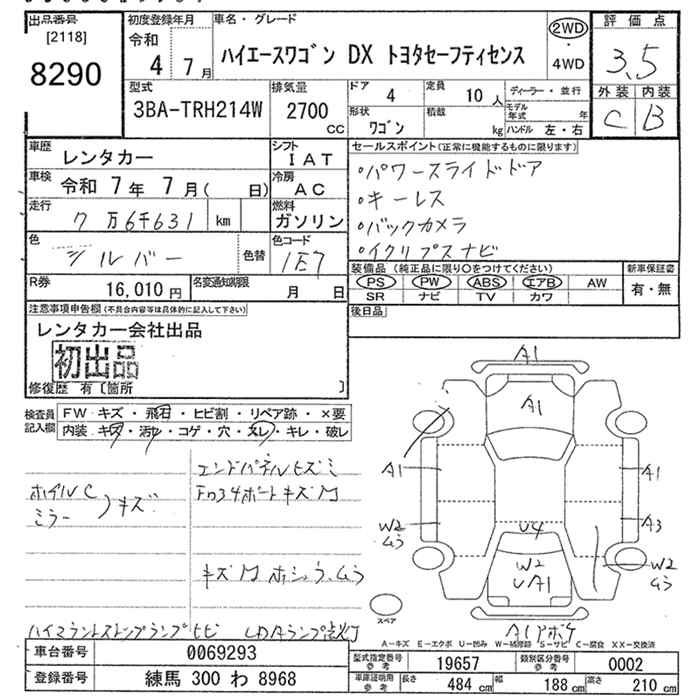 出品番号
[2118]
8290
初度登録年月
令和
4年 7月
車名・グレード
ハイエースワゴン DX トヨタセーフティセンス
2WD
・
4WD
評価点
3.5
外装 内装
C B
型式
3BA-TRH214W
排気量
2700
cc
ドア
4
定員
10人
ディーラー・並行
形状
ワゴン
積載
kg
モデル年式 年
ハンドル 左・右
車歴
レンタカー
シフト
IAT
車検
令和 7年 7月( 日)
冷房
AC
走行
7万6千631 km
燃料
ガソリン
色
シルバー
色替
色コード
1E7
R券
16,010円
名変通知期限
月 日
セールスポイント(正常に機能するものに限ります)
・パワースライドドア
・キーレス
・バックカメラ
・イクリプスナビ
装備品(純正品に限り○をつけてください)
PS PW ABS エアB AW
SR ナビ TV カワ
新車保証書
有・無
後日品
注意事項申告欄(不具合内容等は具体的に記入して下さい)
レンタカー会社出品
初出品
修復歴 有〔箇所 〕
検査員
記入欄
FW キズ・飛石・ヒビ割・リペア跡・×要
内装 キズ・汚れ・コゲ・穴・スレ・キレ・破レ
エンドパネルヒズミ
ホイルC
ミラー
キズ
ハイマウントストップランプヒビ
A1
A1
A1
A1
W2
A3
U4
W2
UA1
W2
スペア
A-キズ E-エクボ U-凹み W-補修跡 S-サビ C-腐食 XX-交換済
車台番号
0069293
登録番号
練馬 300 わ 8968
型式指定番号
参考
19657
類別区分番号
参考
0002
車庫証明用
参考
長さ 484 cm
幅 188 cm
高さ 210 cm